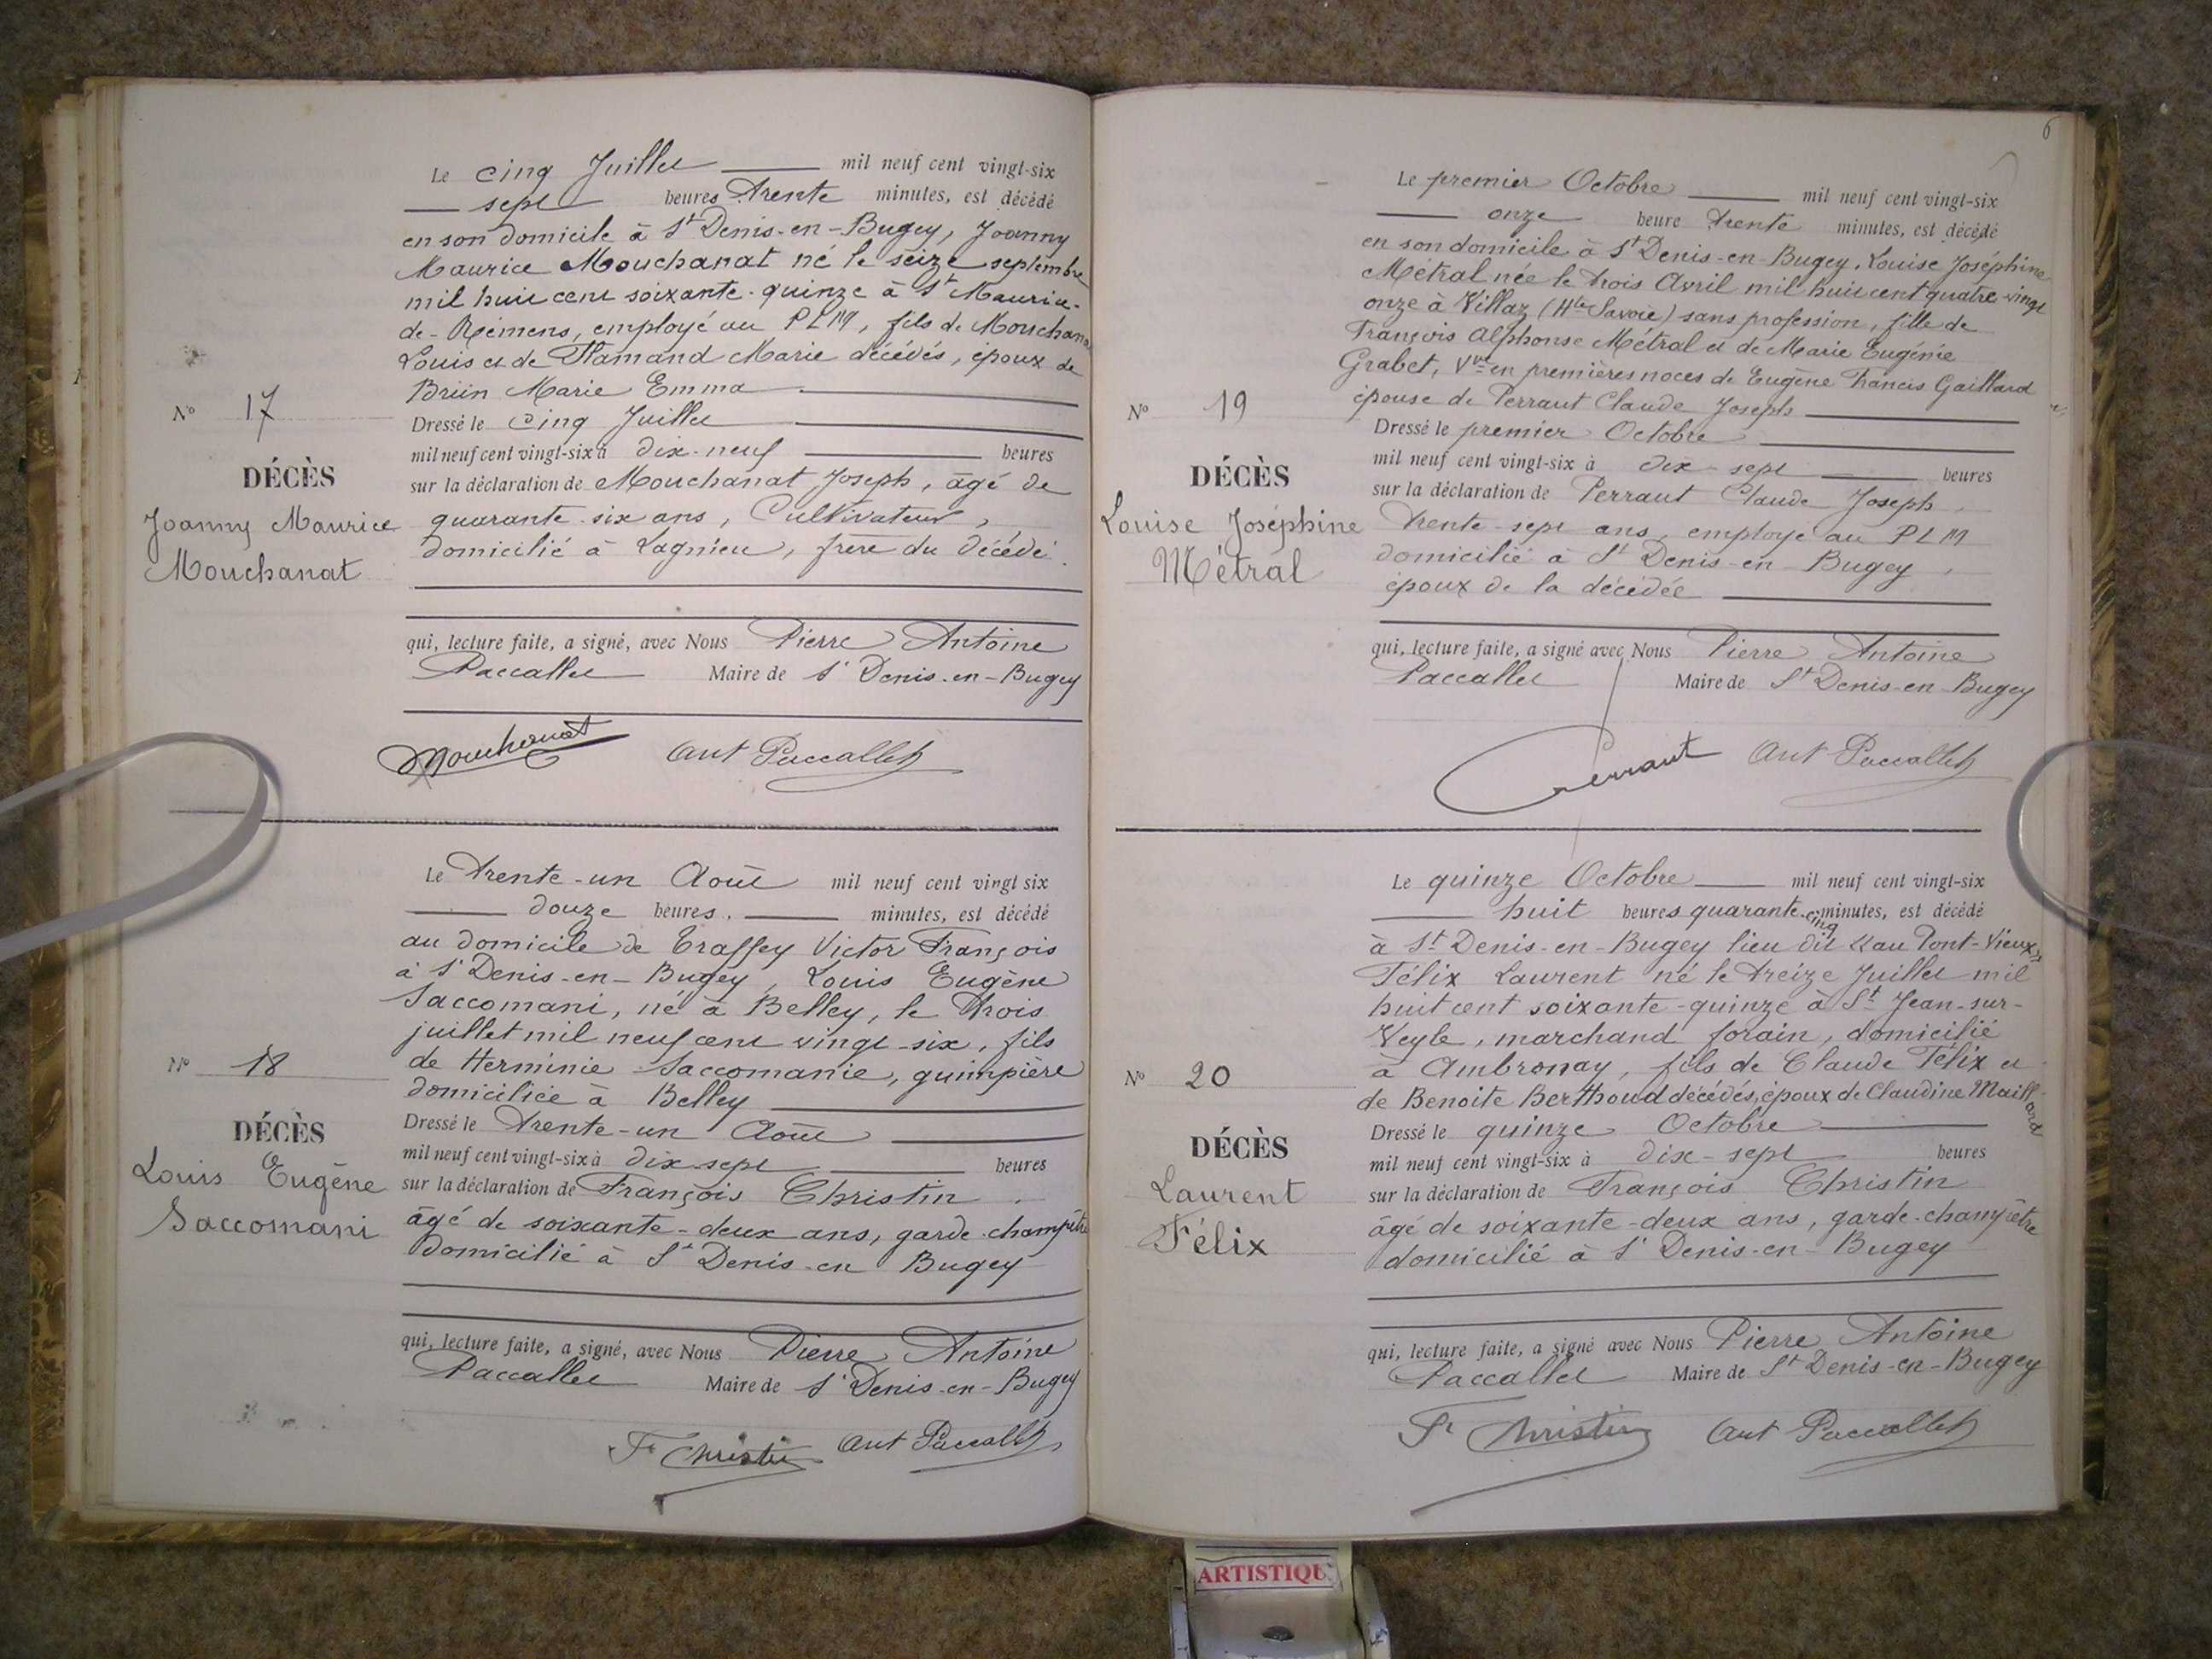 Le cinq Juillet mil neuf cent vingt-six
sept heures trente minutes, est décédé
en son domicile à St Denis-en-Bugey, Joanny
Maurice Mouchanat né le seize septembre
mil huit cent soixante-quinze à St Maurice-
de-Rémens, employé au PLM, fils de Mouchanat
Louis et de Flamand Marie décédés, époux de
Brun Marie Emma
Dressé le cinq Juillet
mil neuf cent vingt-six à dix-neuf heures
sur la déclaration de Mouchanat Joseph, âgé de
quarante-six ans, Cultivateur,
domicilié à Lagnieu, frère du décédé.
qui, lecture faite, a signé, avec Nous Pierre Antoine
Paccallet Maire de St Denis-en-Bugey
No 17
DÉCÈS
Joanny Maurice
Mouchanat
Mouchanat Ant Paccallet
Le trente-un Août mil neuf cent vingt six
douze heures, minutes, est décédé
au domicile de Traffey Victor François
à St Denis-en-Bugey, Louis Eugène
Saccomani, né à Belley, le trois
juillet mil neuf cent vingt-six, fils
de Herminie Saccomanie, guimpière
domiciliée à Belley
Dressé le trente-un Août
mil neuf cent vingt-six à dix-sept heures
sur la déclaration de François Christin,
âgé de soixante-deux ans, garde-champêtre
domicilié à St Denis-en Bugey
qui, lecture faite, a signé, avec Nous Pierre Antoine
Paccallet Maire de St Denis-en-Bugey
No 18
DÉCÈS
Louis Eugène
Saccomani
Fs Christin Ant Paccallet
6
Le premier Octobre mil neuf cent vingt-six
onze heure trente minutes, est décédé
en son domicile à St Denis-en-Bugey, Louise Joséphine
Métral née le trois Avril mil huit cent quatre-vingt
onze à Villaz (Hte Savoie) sans profession, fille de
François Alphonse Métral et de Marie Eugénie
Grabet, Vve en premières noces de Eugène Francis Gaillard
épouse de Perraut Claude Joseph
Dressé le premier Octobre
mil neuf cent vingt-six à dix-sept heures
sur la déclaration de Perraut Claude Joseph,
trente-sept ans, employé au PLM
domicilié à St Denis-en-Bugey,
époux de la décédée
qui, lecture faite, a signé avec Nous Pierre Antoine
Paccallet Maire de St Denis-en-Bugey
No 19
DÉCÈS
Louise Joséphine
Métral
Perraut Ant Paccallet
Le quinze Octobre mil neuf cent vingt-six
huit heures quarante-cinq minutes, est décédé
à St Denis-en-Bugey lieu dit «au Pont-Vieux»
Félix Laurent né le treize Juillet mil
huit cent soixante-quinze à St Jean-sur-
Veyle, marchand forain, domicilié
à Ambronay, fils de Claude Félix et
de Benoite Berthoud décédés, époux de Claudine Maillard
Dressé le quinze Octobre
mil neuf cent vingt-six à dix-sept heures
sur la déclaration de François Christin
âgé de soixante-deux ans, garde-champêtre
domicilié à St Denis-en-Bugey
qui, lecture faite, a signé avec Nous Pierre Antoine
Paccallet Maire de St Denis-en-Bugey
No 20
DÉCÈS
Laurent
Félix
Fs Christin Ant Paccallet
ARTISTIQU